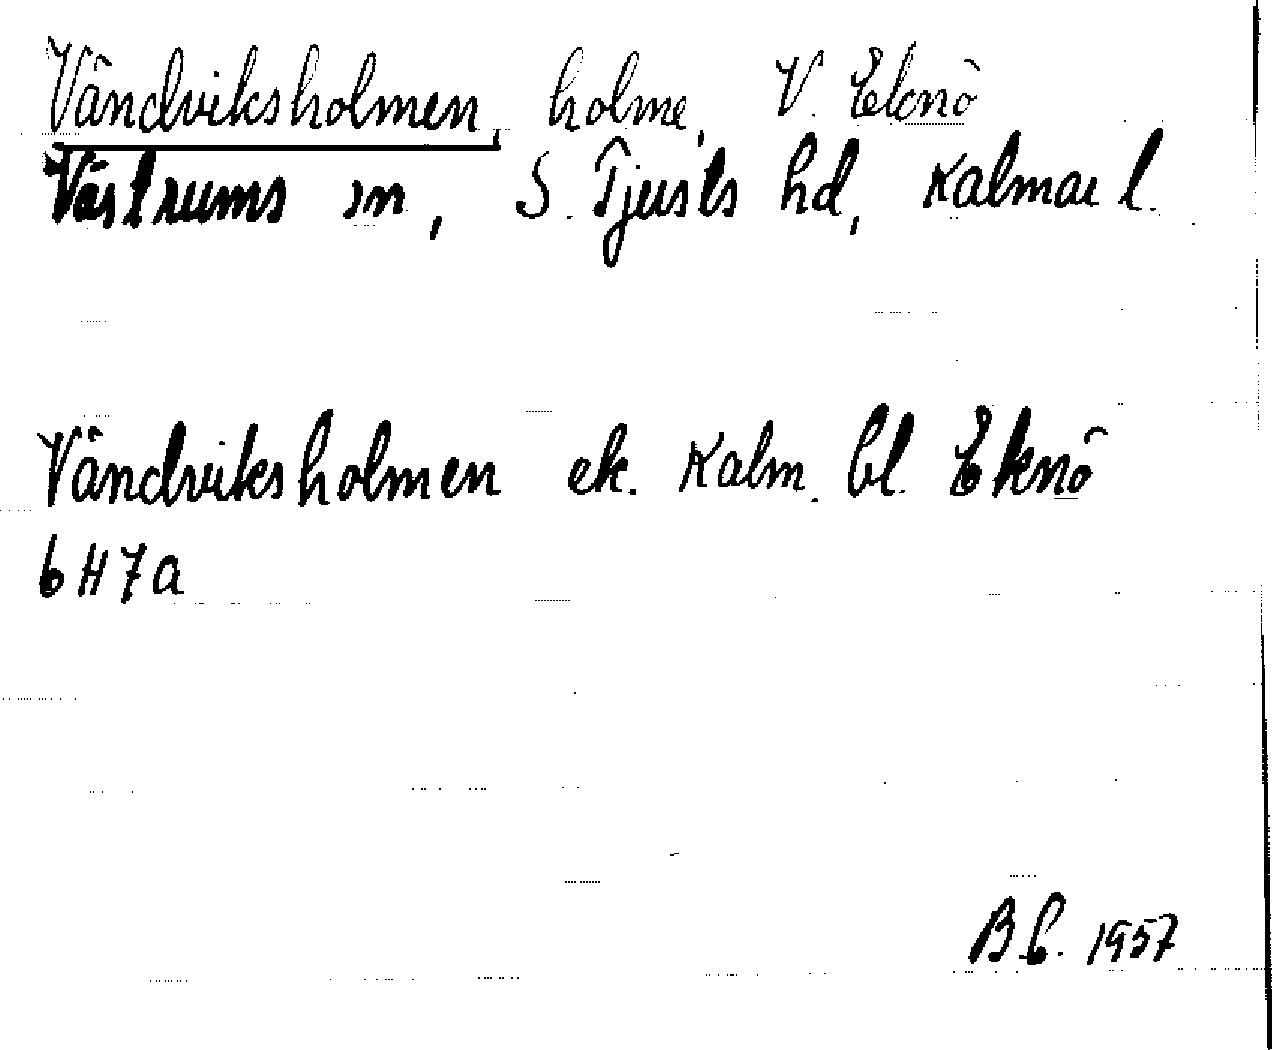 Vändviksholmen, holme, V. Eknö
Västrums sn, S. Tjusts hd, Kalmar l.
Vändviksholmen ek. Kalm. bl. Eknö
6H7a
B.b. 1957